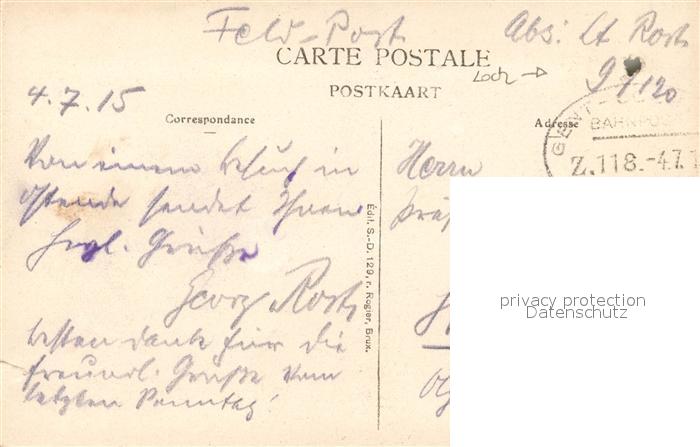 Feld-Post
Abs: Lt Rost
CARTE POSTALE
Loch
POSTKAART
4.7.15
Correspondance
Adresse
GENT
BAHNPOST
Z.118.-4.7.1
Von einem Besuch in
Ostende sendet Ihnen
herzl. Grüsse
Georg Rost
besten Dank für die
freundl. Grüsse vom
letzten Sonntag!
Édit. S.-D. 129, r. Rogier, Brux.
Herrn
privacy protection
Datenschutz